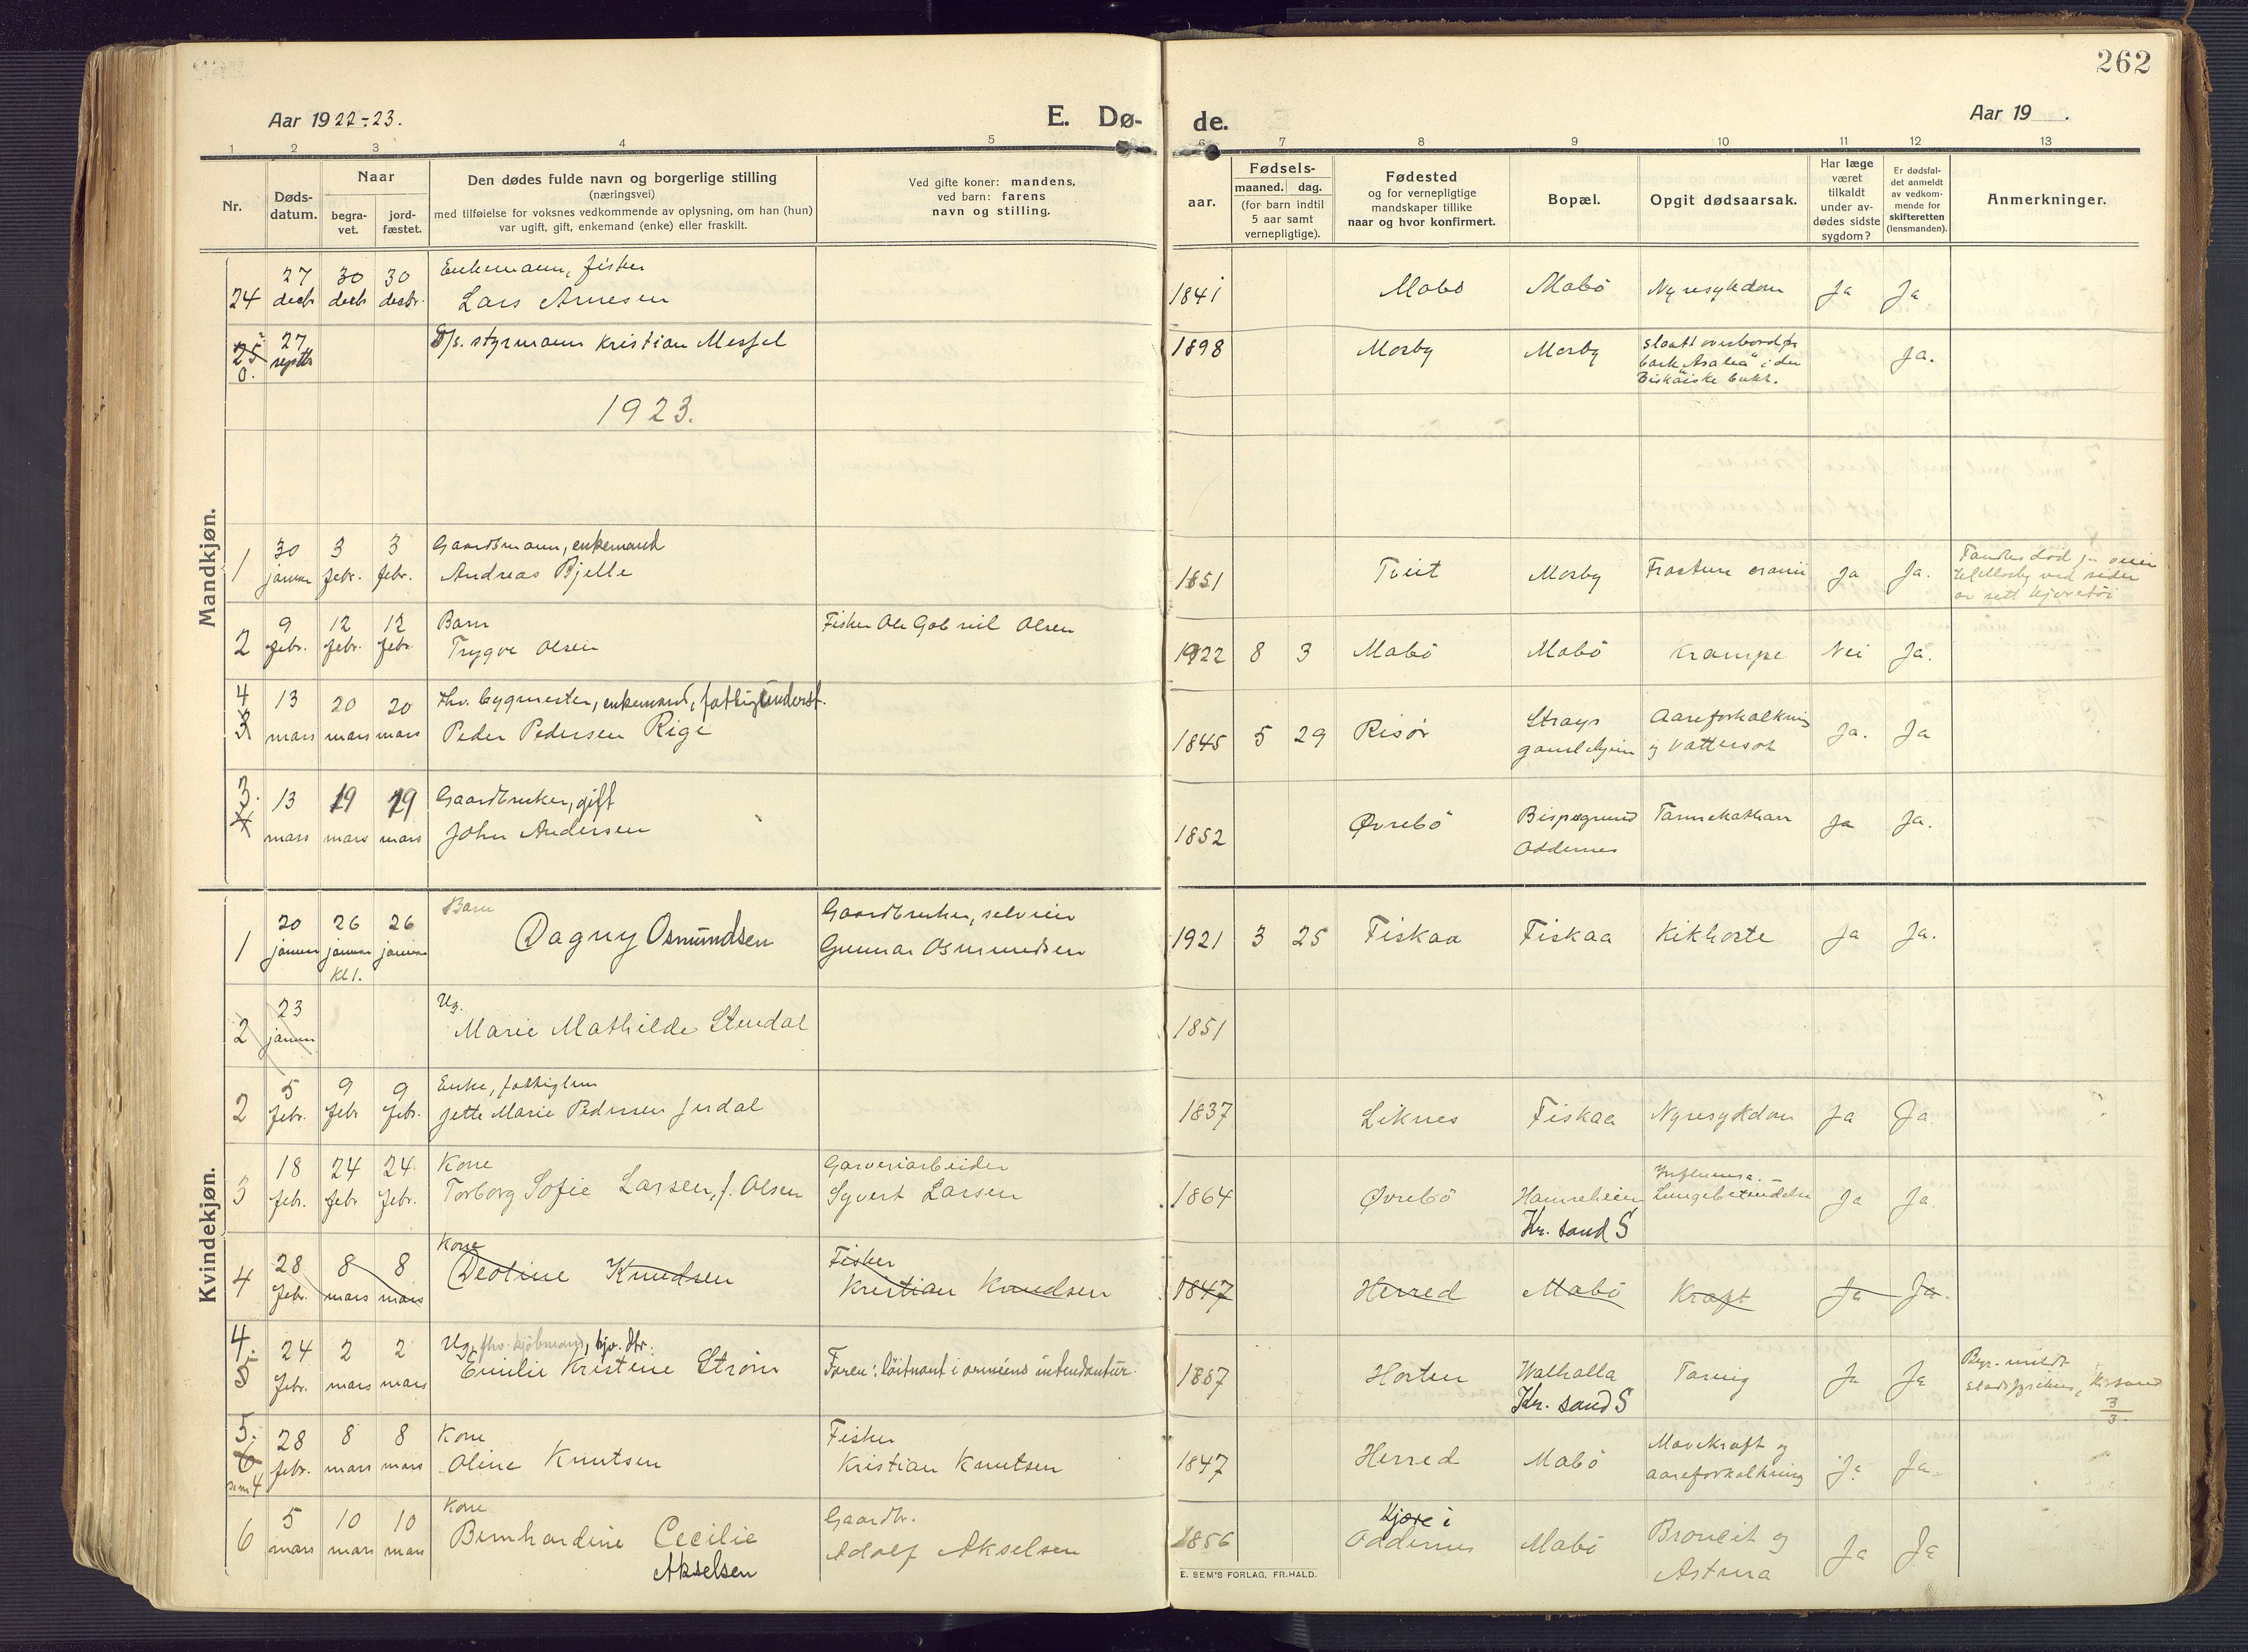 262
Aar 1922-23.
E. Dø-
de.
Aar 19 .
1 2 3 4 5 6 7 8 9 10 11 12 13
Nr.
Døds-
datum.
Naar
begra-
vet.
jord-
fæstet.
Den dødes fulde navn og borgerlige stilling
(næringsvei)
med tilføielse for voksnes vedkommende av oplysning, om han (hun)
var ugift, gift, enkemand (enke) eller fraskilt.
Ved gifte koner: mandens,
ved barn: farens
navn og stilling.
Fødsels-
aar.
maaned. dag.
(for barn indtil
5 aar samt
vernepligtige).
Fødested
og for vernepligtige
mandskaper tillike
naar og hvor konfirmert.
Bopæl.
Opgit dødsaarsak.
Har læge
været
tilkaldt
under av-
dødes sidste
sygdom?
Er dødsfal-
det anmeldt
av vedkom-
mende for
skifteretten
(lensmanden).
Anmerkninger.
Mandkjøn.
24 27 decbr 30 decbr 30 decbr.
Enkemann, fisker
Lars Arnesen
1841 Mabø Mabø Nyresykdom Ja Ja
25 0. 27 septbr
styrmann Kristian Mesel
1898 Mosby Mosby
slaatt overbord fra
bark "Asalea" i den
Biskaiske bukt.
Ja.
1923.
1 30 januar 3 febr. 3 febr.
Gaardsmann, enkemand
Andreas Bjelle
1851 Tveit Mosby Fractura cranii Ja Ja.
2 9 febr. 12 febr. 12 febr.
Barn
Trygve Olsen
Fisker Ole Gabriel Olsen
1922 8 3 Mabø Mabø Krampe Nei Ja.
4 3 13 mars 20 mars 20 mars
fhv. bygmester, enkemand, fattigunderst.
Peder Pedersen Rige
1845 5 29 Risør
Strays
gamlehjem
Aareforkalkning
og Vattersot
Ja. Ja
3. 4 13 mars 19 mars 19 mars
Gaardbruker, gift
John Andersen
1852 Øvrebø
Bispegrund
Oddernes
Ja Ja.
Kvindekjøn.
1 20 januar 26 januar kl 1. 26 januar
Barn
Dagny Osmundsen
Gaardbruker, selveier
Gunnar Osmundsen
1921 3 25 Fiskaa Fiskaa Kikhoste Ja Ja.
2 23 januar
Ug.
Marie Mathilde Stendal
1851
2 5 febr. 9 febr 9 febr.
Enke, fattiglem
Jette Marie Pedersen Jerdal
1837 Liknes Fiskaa Nyresykdom Ja Ja
3 18 febr. 24 febr 24 febr.
Kone
Torborg Sofie Larsen, f. Olsen
Garveriarbeider
Syvert Larsen
1864 Øvrebø
Hamreheien
Kr. sand S
Influensa. -
Lungebetændelse
Ja Ja
4 28 febr. 8 mars 8 mars
Kone
Deoline Knudsen
Fisker
Kristian Knudsen
1847 Herred Mabø Kræft Ja Ja.
4. 5 24 febr. 2 mars 2 mars
Ug. fhv. kjøbmand, hjv. dtr.
Emilie Kristene Strøm
Faren: løitnant i arméens intendantur.
1887 Horten
Walhalla
Kr. sand S
Tæring Ja Ja
3/3
5. 6 28 febr. 8 mars 8 mars
Kone
Oline Knutsen
Fisker
Kristian Knutsen
1847 Herred Mabø
Mavekræft og
aareforkalkning
Ja Ja.
6 5 mars 10 mars 10 mars
Kone
Bernhardine Cecilie
Akselsen
Gaardbr.
Adolf Akselsen
1856
Kjære i
Oddernes
Mabø
Bronkit og
Astma
Ja Ja
E. SEM'S FORLAG, FR.HALD.